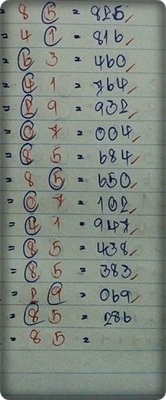 = 8 5 = 825
= 4 1 = 816
= 6 3 = 460
= 4 1 = 764
= 2 9 = 932
= 0 7 = 004
= 8 5 = 684
= 8 5 = 650
= 0 7 = 102
= 4 1 = 947
= 8 5 = 438
= 8 5 = 383
= 2 9 = 069
= 8 5 = 286
= 8 5 =